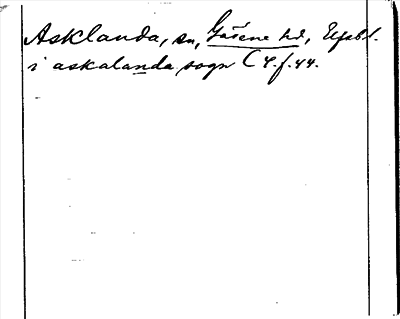 Asklanda, sn, Gäsene hd, Elfsbl.
i askalanda sogn C4.f.44.